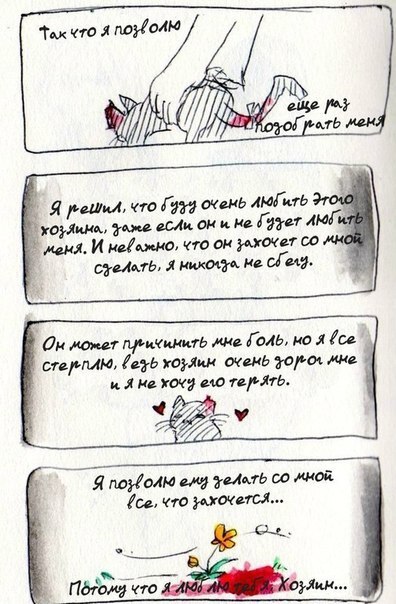 Так что я позволю
еще раз
подобрать меня
Я решил, что буду очень любить этого
хозяина, даже если он и не будет любить
меня. И неважно, что он захочет со мной
сделать, я никогда не сбегу.
Он может причинить мне боль, но я все
стерплю, ведь хозяин очень дорог мне
и я не хочу его терять.
Я позволю ему делать со мной
все, что захочется...
Потому что я люблю тебя, Хозяин...